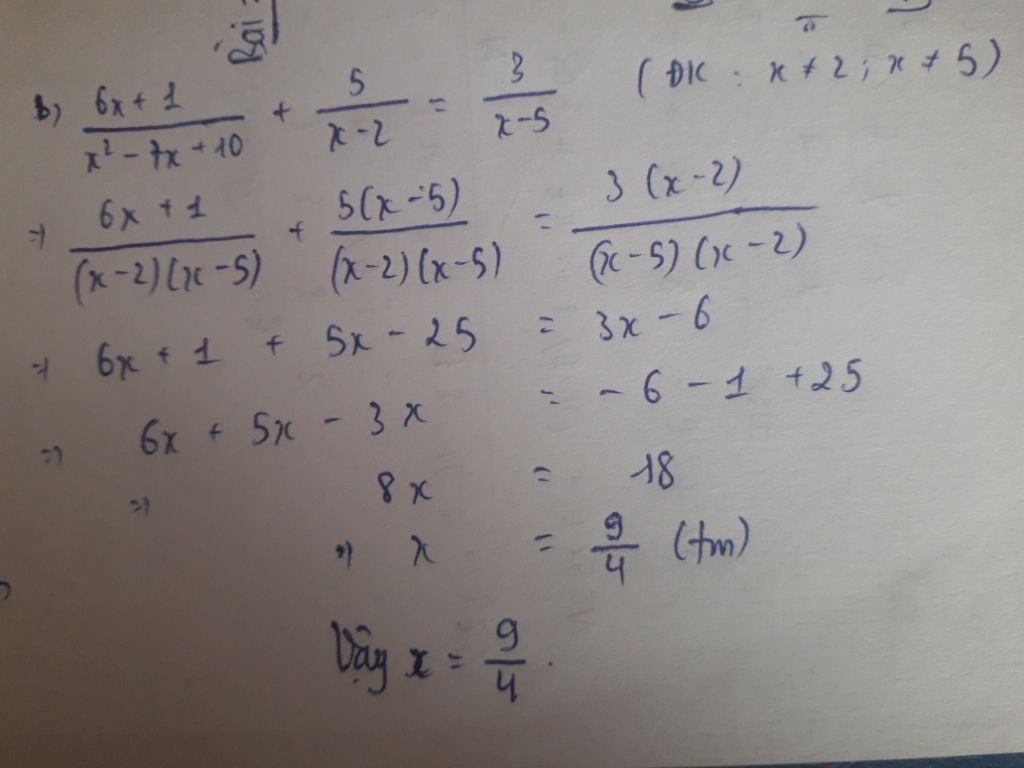 Bài
b) (6x + 1)/(x² - 7x + 10) + 5/(x - 2) = 3/(x - 5) (ĐK : x ≠ 2 ; x ≠ 5)
=> (6x + 1)/((x - 2)(x - 5)) + 5(x - 5)/((x - 2)(x - 5)) = 3(x - 2)/((x - 5)(x - 2))
=> 6x + 1 + 5x - 25 = 3x - 6
=> 6x + 5x - 3x = - 6 - 1 + 25
=> 8x = 18
=> x = 9/4 (tm)
Vậy x = 9/4 .